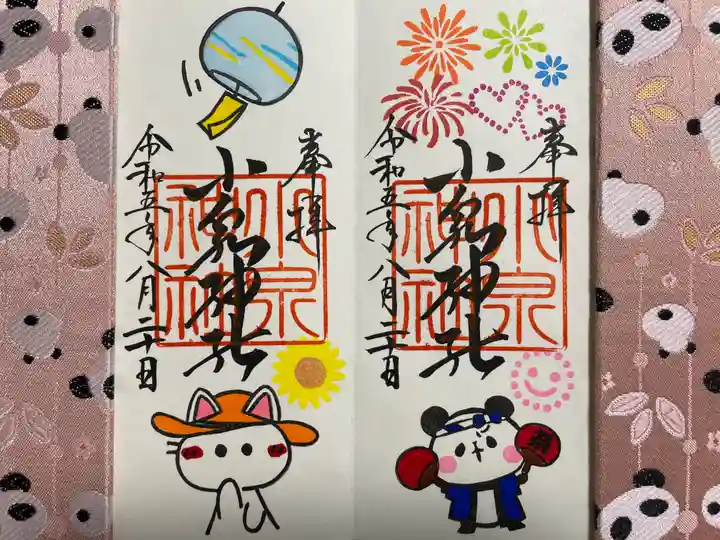 奉拝
小泉神社
令和五年八月二十日
小泉
神社
奉拝
小泉神社
令和五年八月二十日
小泉
神社